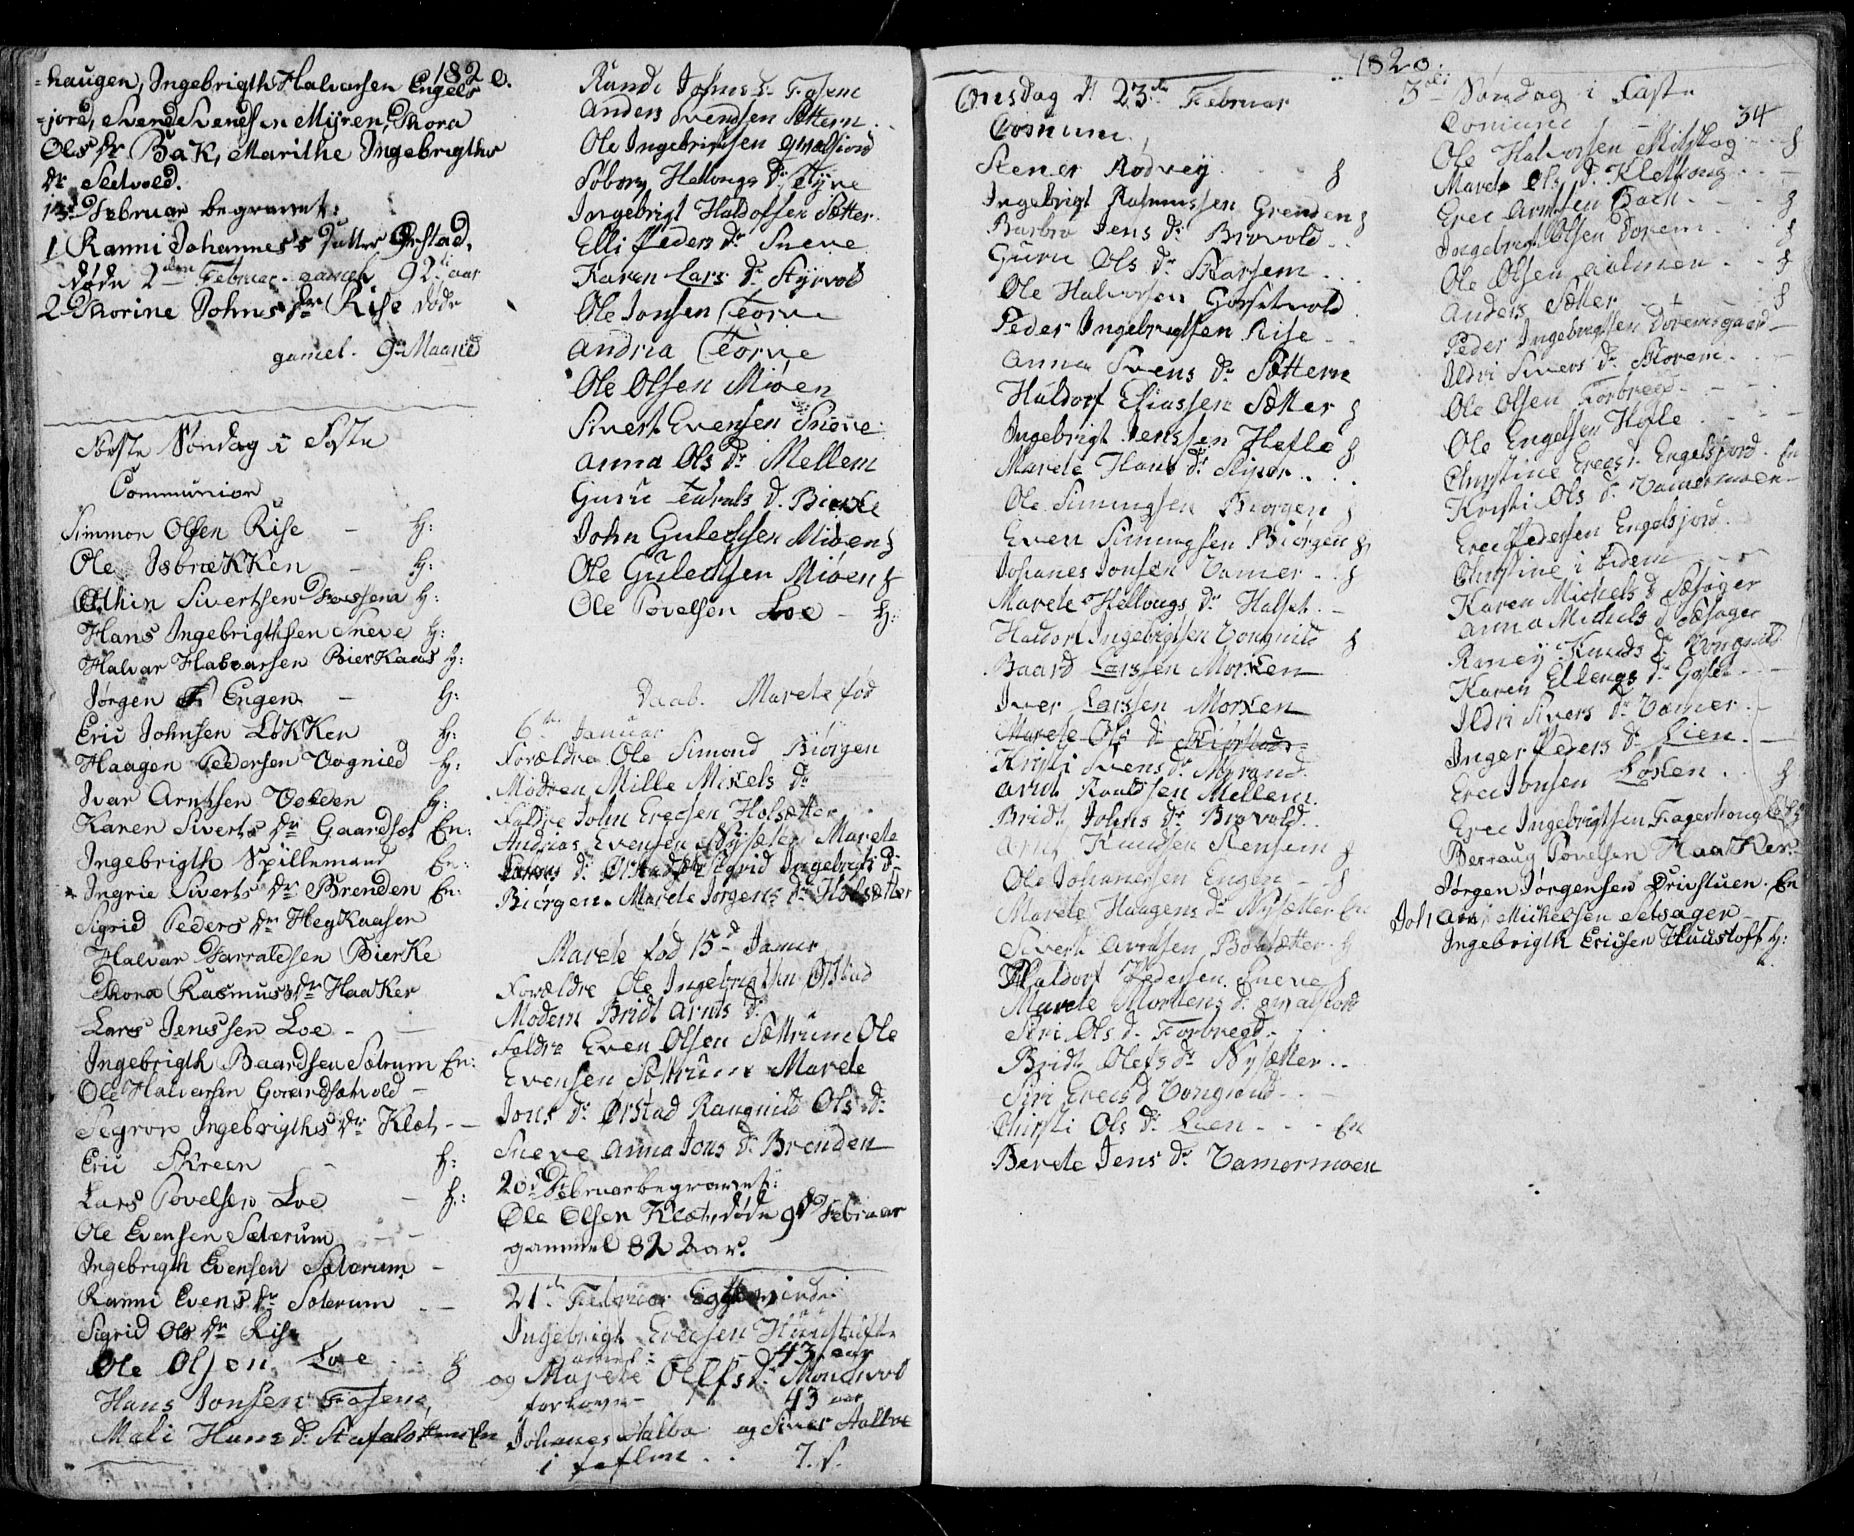 1820.
=haugen, Ingebrigth Halvarsen Engels
=jord, Svend Svendsen Myren, Thora
Ols Dr Bak, Marithe Ingebrigths
Dr Sletvold.
13d Februar begravet:
1 Ranni Johannes's Datter Ørstad,
døde 2den Februar gamel 92 aar
2 Thorine Johns Dr Rise døde
gamel. 9 Maaned
Første Søndag i Faste
Communion
Simmon Olsen Rise - H:
Ole IsbræKKen - H:
Othin Sivertsen H:
Hans Ingebrigthsen Sneve H:
Halvar Halvarsen BierKaas H:
Jørgen Engen - H:
Eric Johnsen LøKKen H:
Haagen Pedersen Vognild H:
Ivar Arntsen H:
Karen Siverts Dr Gaardsæt En:
Ingebrigth Spillemand En:
Ingrie Siverts Dr Brenden En:
Sigrid Peders Dr HegKaasen
Halvar Harraldsen BierKe
Thora Rasmus Dr Haaker
Lars Jenssen Loe -
Ingebrigth Baardsen Sætrum En:
Ole Halvarsen Goardsætvold -
Segron Ingebrigths Dr Klæt -
Eric Skreen - H:
Lars Povelsen Loe - H:
Ole Evensen Sæterum - -
Ingebrigth Evensen Sæterum -
Ranni Evens Dr Sæterum - -
Sigrid Ols Dr Rise
Ole Olsen Loe H
Hans Jonsen Fosem
Mali Hans D. En
Randi Johns D. Fosem
Anders Svendsen Sættern
Ole Ingebrigtsen
Søborg Hellongs Dr Styve
Ingebrigt Haldossen Sætter
Elli Peders Dr Sneve
Karen Lars Dr Styvold
Ole Jonsen Torve
Andria Torve
Ole Olsen Mioen
Sivert Evensen Sneve
Anna Ols Dr Mellem
Guru D. Bierke
John Gulechsen Mioen H
Ole Gulechsen Mioen H
Ole Povelsen Loe - H:
Daab. Marete fød
6te Januar
Forældre Ole Simond Biørgen
Modren Mille Mikels Dr
Faldre John Erecsen Holsætter
Andrias Evensen Nysæter Marete
Dr Ørstad Sigrid Ingebrigts Dr
Biørgen. Marete Jørgens Dr Holsætter
Marete fød 15d Janur
Forældre Ole Ingebrigtsen Ørstad
Modern Bridt Arnts Dr
Faldre Even Olsen Sættrum Ole
Evensen Sættrum Marete
Jons Dr Ørstad Rangnild Ols Dr
Sneve Anna Jons Dr Brenden
20d Februar begravet:
Ole Olsen Klæt, døde 9d Februar
gammel 82 aar.
21de Februar
Ingebrigt Erecsen
gamel 43 aar
og Marete Olefs Dr
forlove 43 aar
Johanes Aalbu og Siver Aalbu
7. s.
1820.
Onsdag d. 23de Februar
Comune
Stener Rødvey H
Ingebrigt Rasmussen Grenden H
Barbro Jens Dr Brovold
Guru Ols Dr Skarsem
Ole Halvorsen Gorsetvold
Peder Ingebrigtsen Rise
Anna Svens Dr Sættern
Haldorf Eliassen Sætter H
Ingebrigt Jenssen Hefle H
Marete Hans Dr
Ole Simingsen Biørgen H
Even Simingsen Biørgen H
Johanes Jonsen Vamer H
Marete Hellongs Dr Halset
Haldort Ingebrigtsen Vongnild H
Baard Larssen Morken
Iver Larssen Morken
Marete Ols Dr
Kristi Svens Dr Myrand
Arnt Roaldsen Mellem
Bridt Johns Dr Brovold
Arnt Knudsen Stensem H
Ole Johanesen Engen H
Marete Haagens Dr Nysætter En
Sivert Arntsen Bolsætter H
Haldorf Pedersen Sneve H
Marete Mortens Dr
Siri Ols D. Forbregd
Bridt Olefs Dr Nysætter
Siri Erecs D Vongnild
Chirsti Ols Dr Lien En
Berete Jens Dr Vamermoen
3die Søndag i Faste
34
Comune
Ole Halvorsen H
Marete Ols D. Klethong
Erec Arntsen Bach H
Ingebrigt Olsen Dorem H
Ole Olsen Aalmen H
Anders Sætter H
Peder Ingebrigtsen Doremsgaard
Ildri Sivers Dr Skorem
Ole Olsen Forbregd
Ole Engelsen Hefle
Christine Erecs D. Engelsjord. En
Kristi Ols Dr Vamermoen
Erec Pedersen Engelsjord
Christine ibidem
Karen Michels D Sætsager
Anna Michels D Sætsager
Raney Knuds D. Vongnild
Karen Ellengs Dr
Ildri Sivers Dr Vamer
Inger Peders Dr Lien
Erec Jonsen Løken H
Erec Ingebrigtsen Fagerhoug
Berraug Povelsen HaaKer
Jørgen Jørgensen Drivstuen. En
Johan Mickelsen Setsager
Ingebrigth Ericsen H: